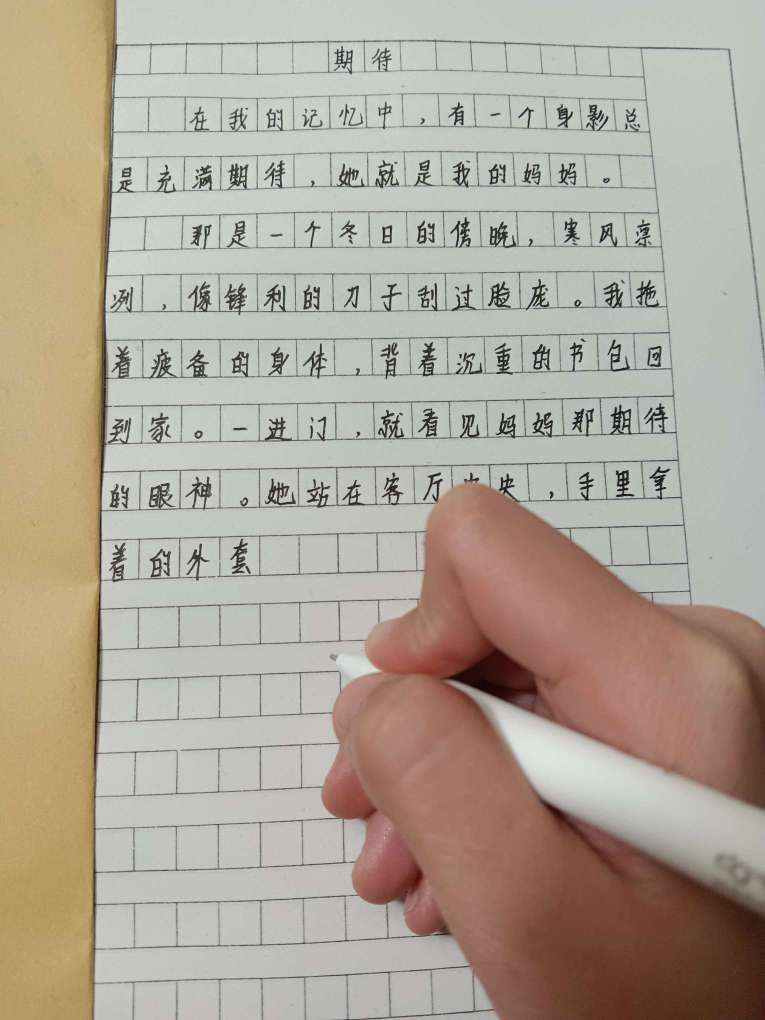 期待
在我的记忆中，有一个身影总
是充满期待，她就是我的妈妈。
那是一个冬日的傍晚，寒风凛
冽，像锋利的刀子刮过脸庞。我拖
着疲备的身体，背着沉重的书包回
到家。一进门，就看见妈妈那期待
的眼神。她站在客厅中央，手里拿
着的外套